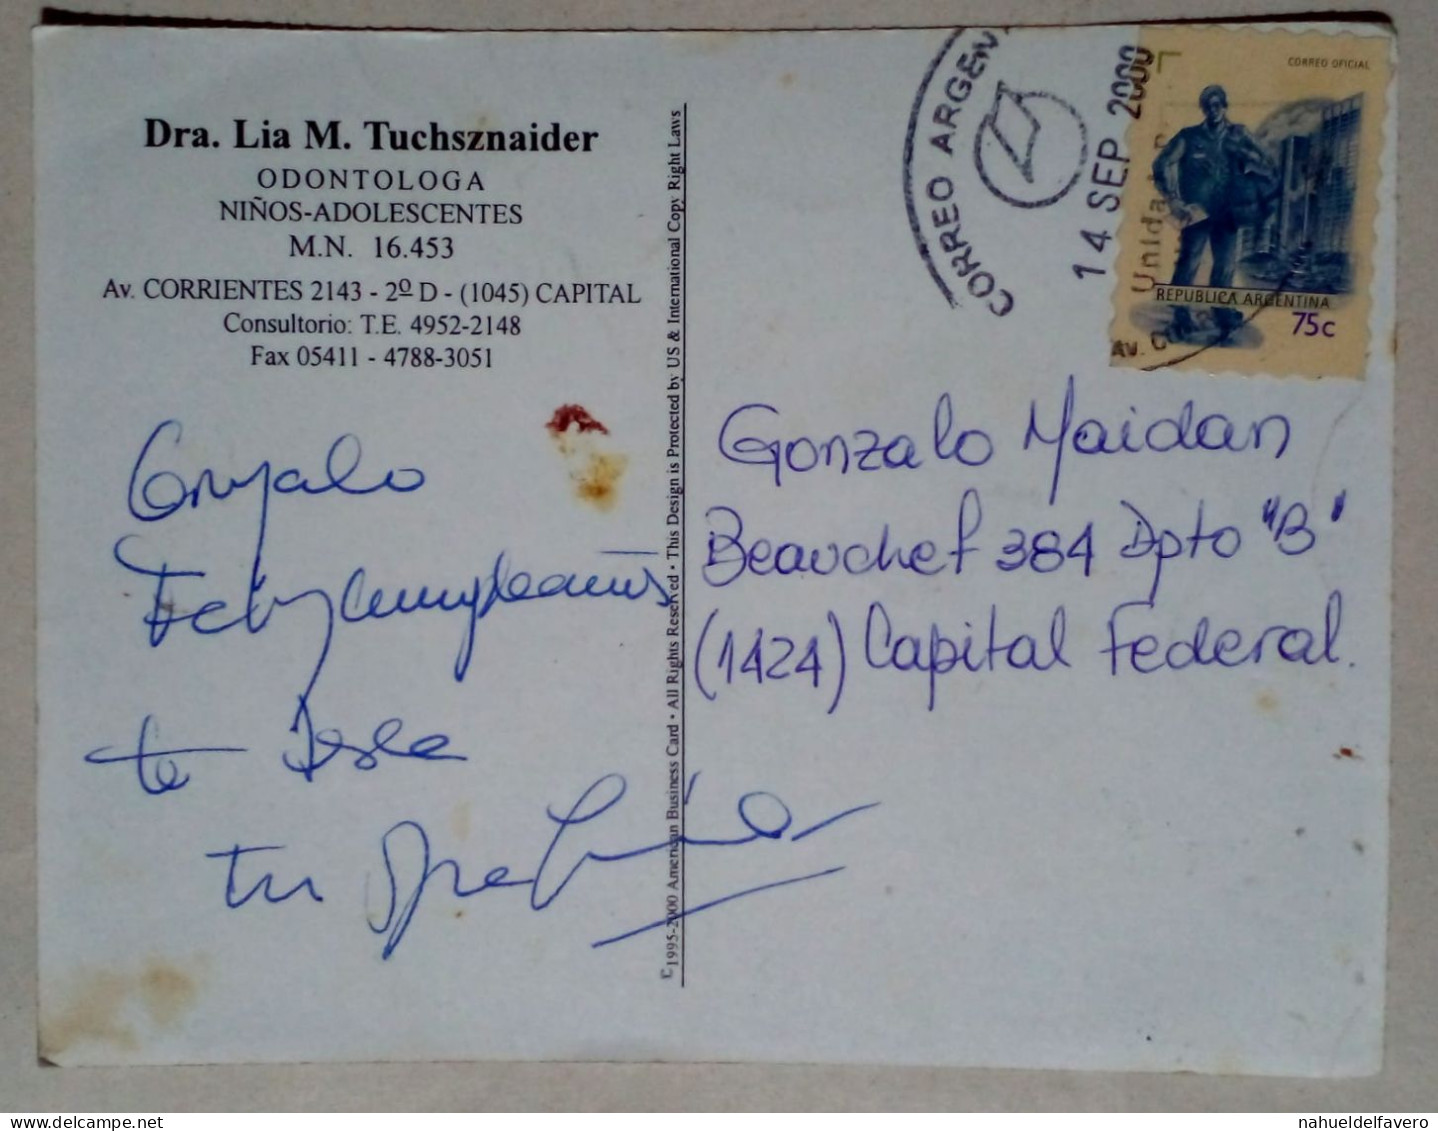 Dra. Lia M. Tuchsznaider
ODONTOLOGA
NIÑOS-ADOLESCENTES
M.N. 16.453
Av. CORRIENTES 2143 - 2º D - (1045) CAPITAL
Consultorio: T.E. 4952-2148
Fax 05411 - 4788-3051
Gonzalo
Feliz cumpleaños
te desea
tu
©1995-2000 American Business Card • All Rights Reserved • This Design is Protected by US & International Copy Right Laws
CORREO ARGEN
14 SEP 2000
Unida
Av.
CORREO OFICIAL
REPUBLICA ARGENTINA
75c
Gonzalo Maidan
Beauchef 384 Dpto "B"
(1424) Capital Federal.
nahueldelfavero
delcampe.net